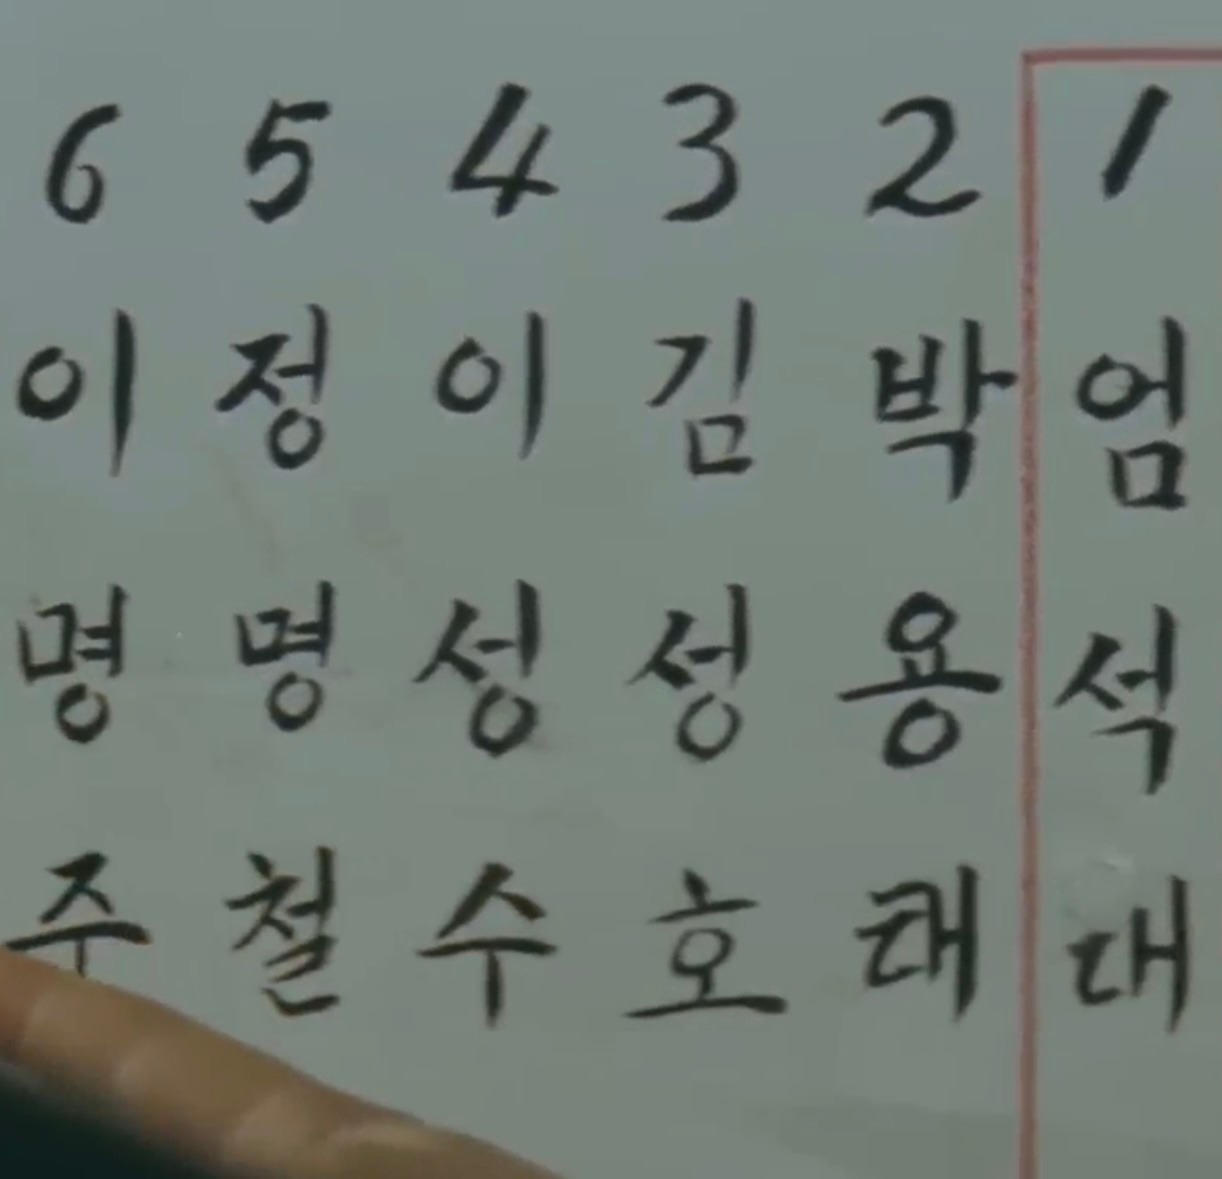 1 엄석대
2 박용태
3 김성호
4 이성수
5 정명철
6 이명주